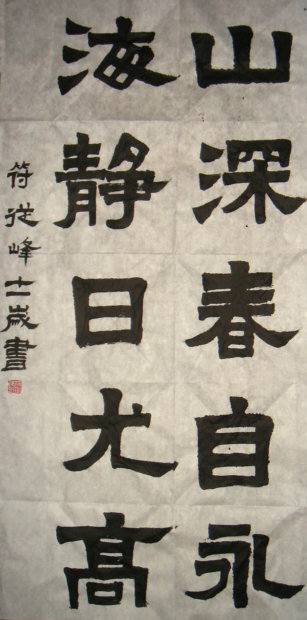 山深春自永
海静日尤高
符從峰十一歲書